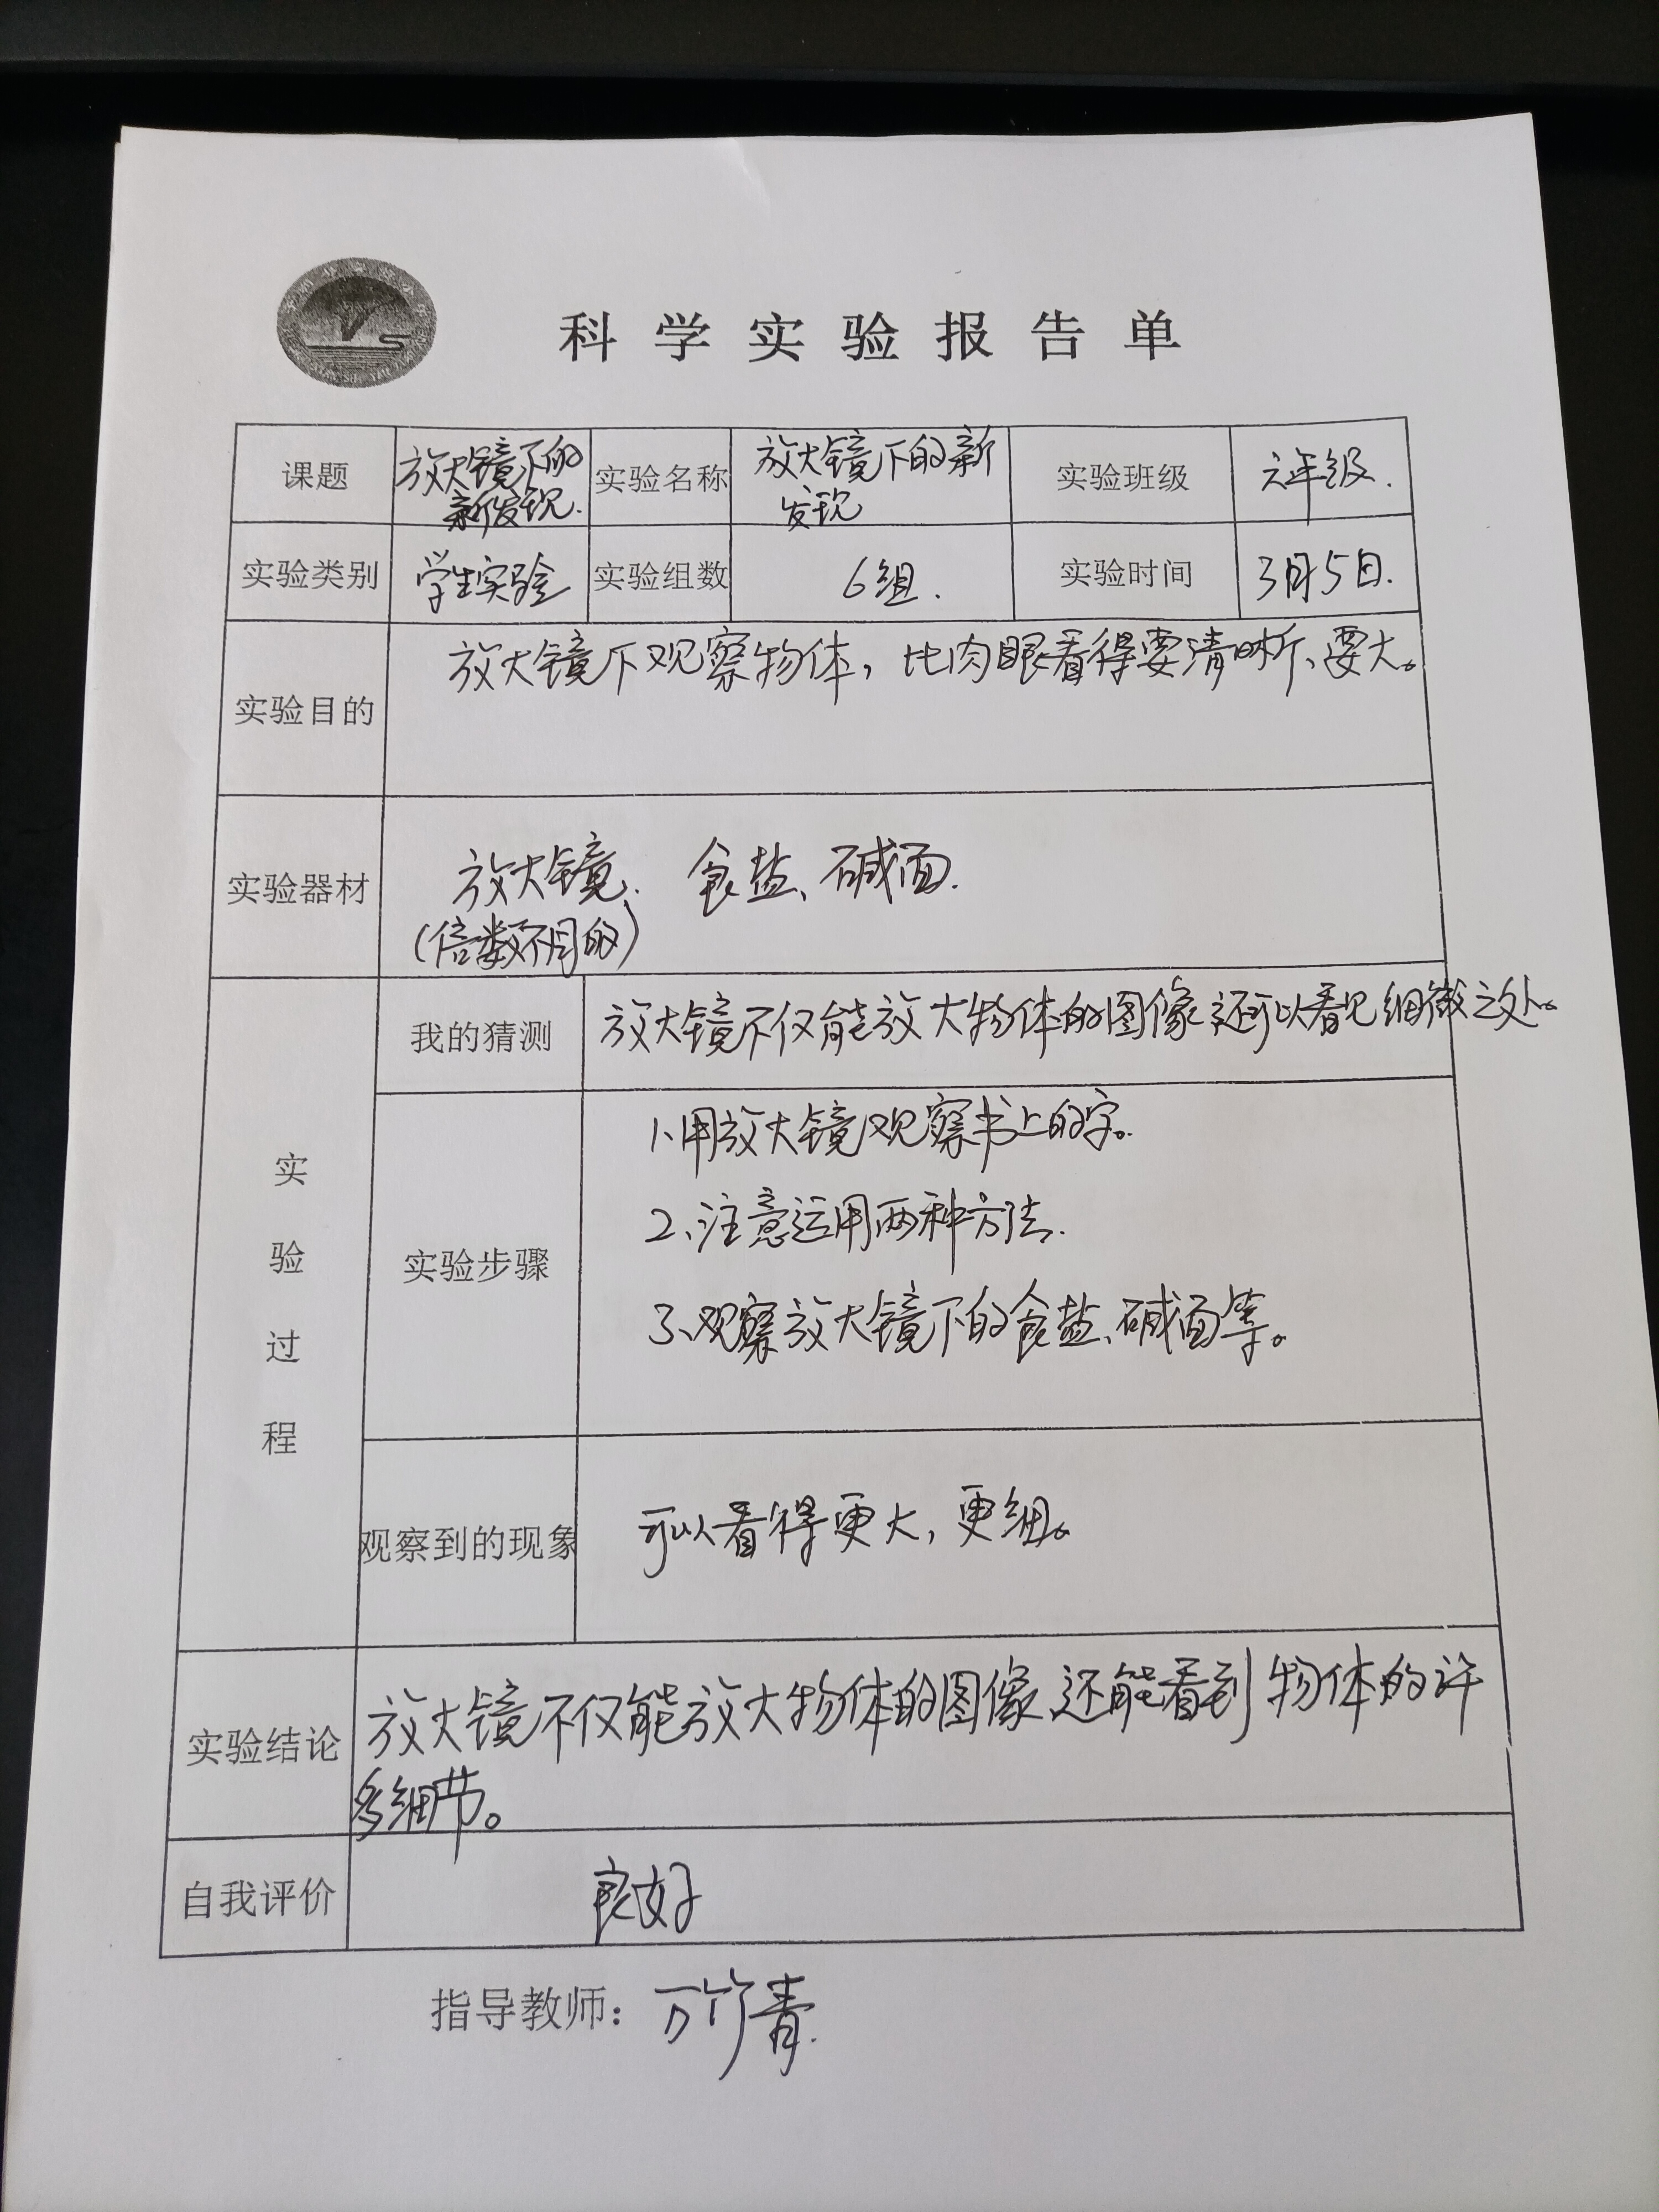 科学实验报告单
课题 放大镜下的 实验名称 放大镜下的新 实验班级 六年级.
新发现. 发现
实验类别 学生实验 实验组数 6组. 实验时间 3月5日.
实验目的 放大镜下观察物体，比肉眼看得要清晰、要大。
实验器材 放大镜. 食盐、碱面.
(倍数不同的)
实验过程
我的猜测 放大镜不仅能放大物体的图像、还可以看见细微之处。
实验步骤
1、用放大镜观察书上的字。
2、注意运用两种方法.
3、观察放大镜下的食盐、碱面等。
观察到的现象 可以看得更大，更细。
实验结论 放大镜不仅能放大物体的图像、还能看到物体的许
多细节。
自我评价 良好
指导教师：万竹青.